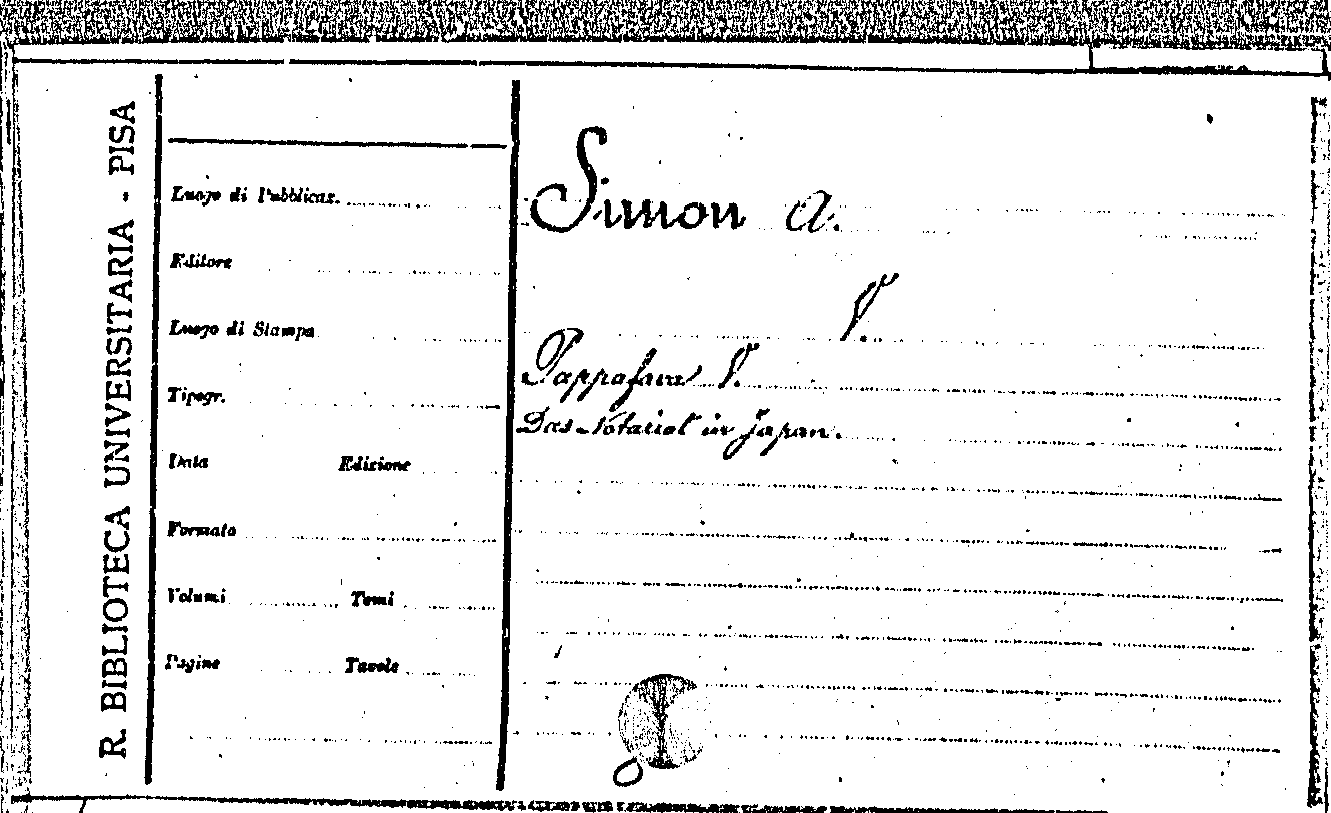 R. BIBLIOTECA UNIVERSITARIA - PISA
Luogo di Pubblicaz.
Editore
Luogo di Stampa
Tipogr.
Data Edizione
Formato
Volumi Tomi
Pagine Tavole
Simon A.
V.
Pappafava V.
Das Notariat in Japan.